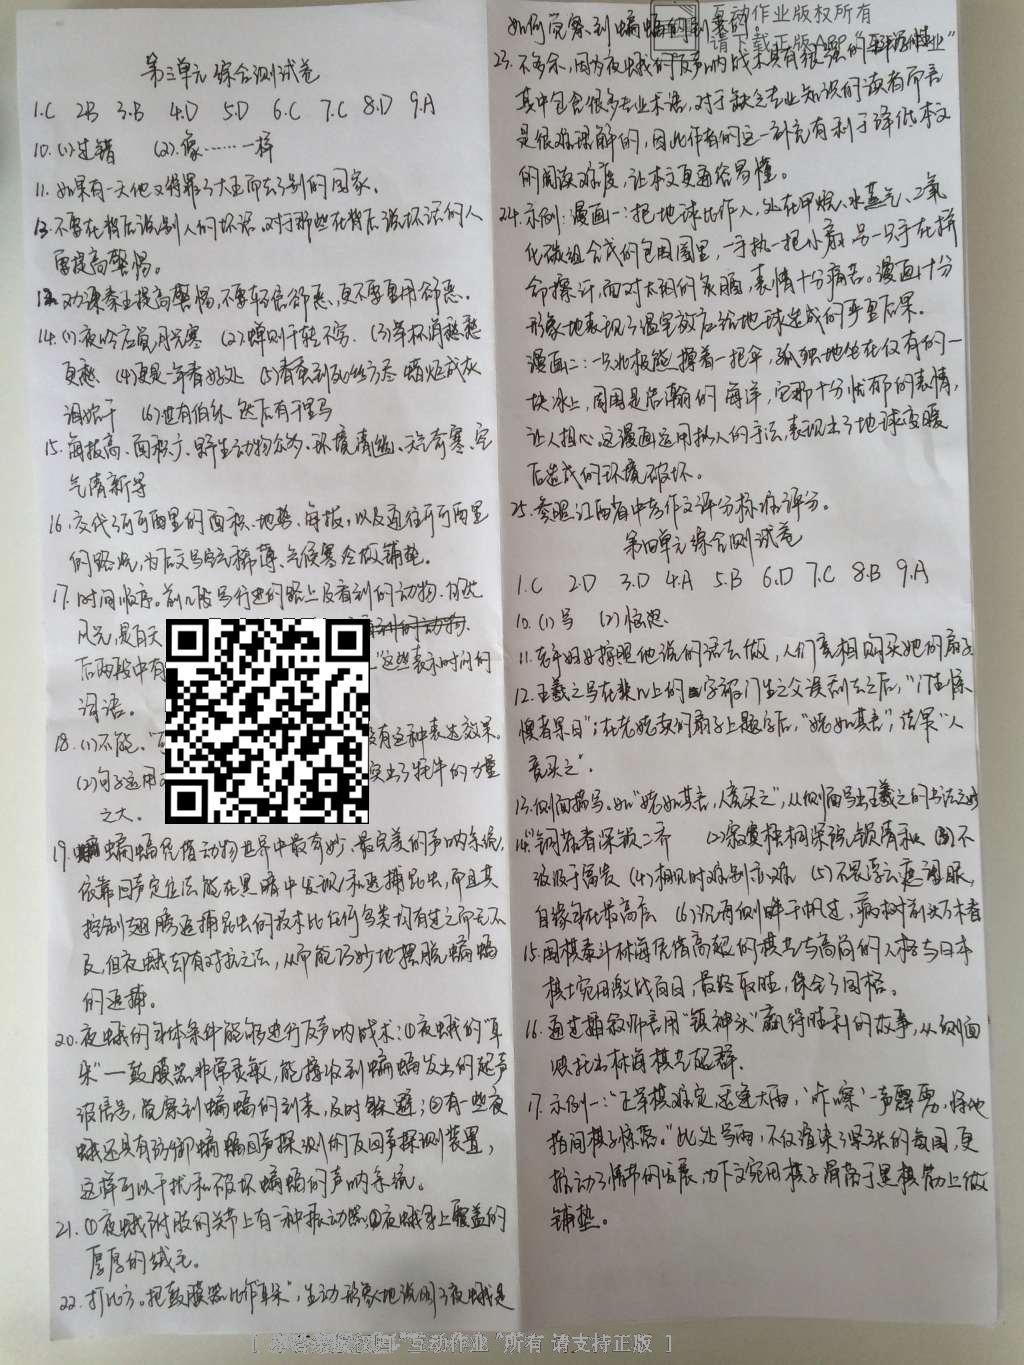 第三单元综合测试卷
1.C 2B 3.B 4.D 5.D 6.C 7.C 8.D 9.A
10.(1)过错 (2).像……一样
11.如果有一天他又得罪了大王而去了别的国家。
不要在背后说别人的坏话。对于那些在背后说坏话的人
要提高警惕。
劝谏秦王提高警惕,不要轻信郤恶、更不要重用郤恶。
14.(1)夜吟应觉月光寒 (2)蝉则千转不穷. (3)举杯消愁愁
更愁 (4)最是一年春好处 (5)春蚕到死丝方尽 蜡炬成灰
泪始干 (6)世有伯乐 然后有千里马
15.海拔高、面积广、野生动物众多、环境清幽、天气奇寒、空
气清新等
16.交代了可可西里的面积、地势、海拔,以及通往可可西里
的路况,为后文写空气稀薄、气候寒冷做铺垫。
17.时间顺序。前几段写行进的路上及看到的动物、自然
风光,是白天
后两段中有 这些表示时间的
词语。
18.(1)不能。 没有这种表达效果。
(2)句子运用 突出了牦牛的力量
之大。
19.蝙蝠凭借动物世界中最有妙、最完美的声呐系统,
依靠回声定位法能在黑暗中发现和追捕昆虫,而且其
控制翅膀追捕昆虫的技术比任何鸟类均有过之而无不
及,但夜蛾却有对抗之法,从而能巧妙地摆脱蝙蝠
的追捕。
20.夜蛾的身体条件能够进行反声呐战术:①夜蛾的“耳
朵”—鼓膜器非常灵敏,能接收到蝙蝠发出的超声
波信号,觉察到蝙蝠的到来,及时躲避;②有一些夜
蛾还具有防御蝙蝠回声探测的反回声探测装置,
这样可以干扰和破坏蝙蝠的声呐系统。
21.①夜蛾附肢的关节上有一种振动器;②夜蛾身上覆盖的
厚厚的绒毛。
22.打比方。把鼓膜器比作“耳朵”,生动形象地说明了夜蛾是
如何觉察到蝙蝠的到来的。
互动作业版权所有
请下载正版APP“互动作业”
23.不多余,因为夜蛾的反声呐战术具有很强的科学性,
其中包含很多专业术语,对于缺乏专业知识的读者而言
是很难理解的,因此作者的这一补充有利于降低本文
的阅读难度,让本文更通俗易懂。
24.示例:漫画一:把地球比作人,处在甲烷、水蒸气、二氧
化碳组合成的包围圈里,一手执一把小扇,另一只手在拼
命擦汗,面对太阳的炙晒,表情十分痛苦。漫画十分
形象地表现了温室效应给地球造成的严重后果。
漫画二:一只北极熊撑着一把伞,孤独地坐在仅有的一
块冰上,周围是浩瀚的海洋,它那十分忧郁的表情,
让人担心。这漫画运用拟人的手法,表现出了地球变暖
后造成的环境破坏。
25.参照江西省中考作文评分标准评分。
第四单元综合测试卷
1.C 2.D 3.D 4.A 5.B 6.D 7.C 8.B 9.A
10.(1)写 (2)恼怒
11.老年妇女按照他说的话去做,人们竞相购买她的扇子
12.王羲之写在棐几上的字被门生之父误刮去之后,“门生惊
懊者累日”;在老姥卖的扇子上题字后,“姥如其言”,结果“人
竞买之”。
13.侧面描写。如“姥如其言,人竞买之”,从侧面写出王羲之的书法之妙
14.“铜雀春深锁二乔 (2)寂寞梧桐深院锁清秋 (3)不
汲汲于富贵 (4)相见时难别亦难 (5)不畏浮云遮望眼,
自缘身在最高层 (6)沉舟侧畔千帆过,病树前头万木春
15.围棋泰斗林海凭借高超的棋艺与高尚的人格与日本
棋士宛田激战百日,最终取胜,保全了国格。
16.通过插叙师傅用“镇神头”赢得胜利的故事,从侧面
烘托出林海棋艺超群。
17.示例一:“正举棋难定,恶逢大雨,‘咋嚓’一声霹雳,将他
指间棋子惊落。”此处写雨,不仅渲染了紧张的氛围,更
推动了情节的发展,为下文宛田棋子滑落于黑棋筋上做
铺垫。
[ 本答案版权归“互动作业”所有 请支持正版 ]